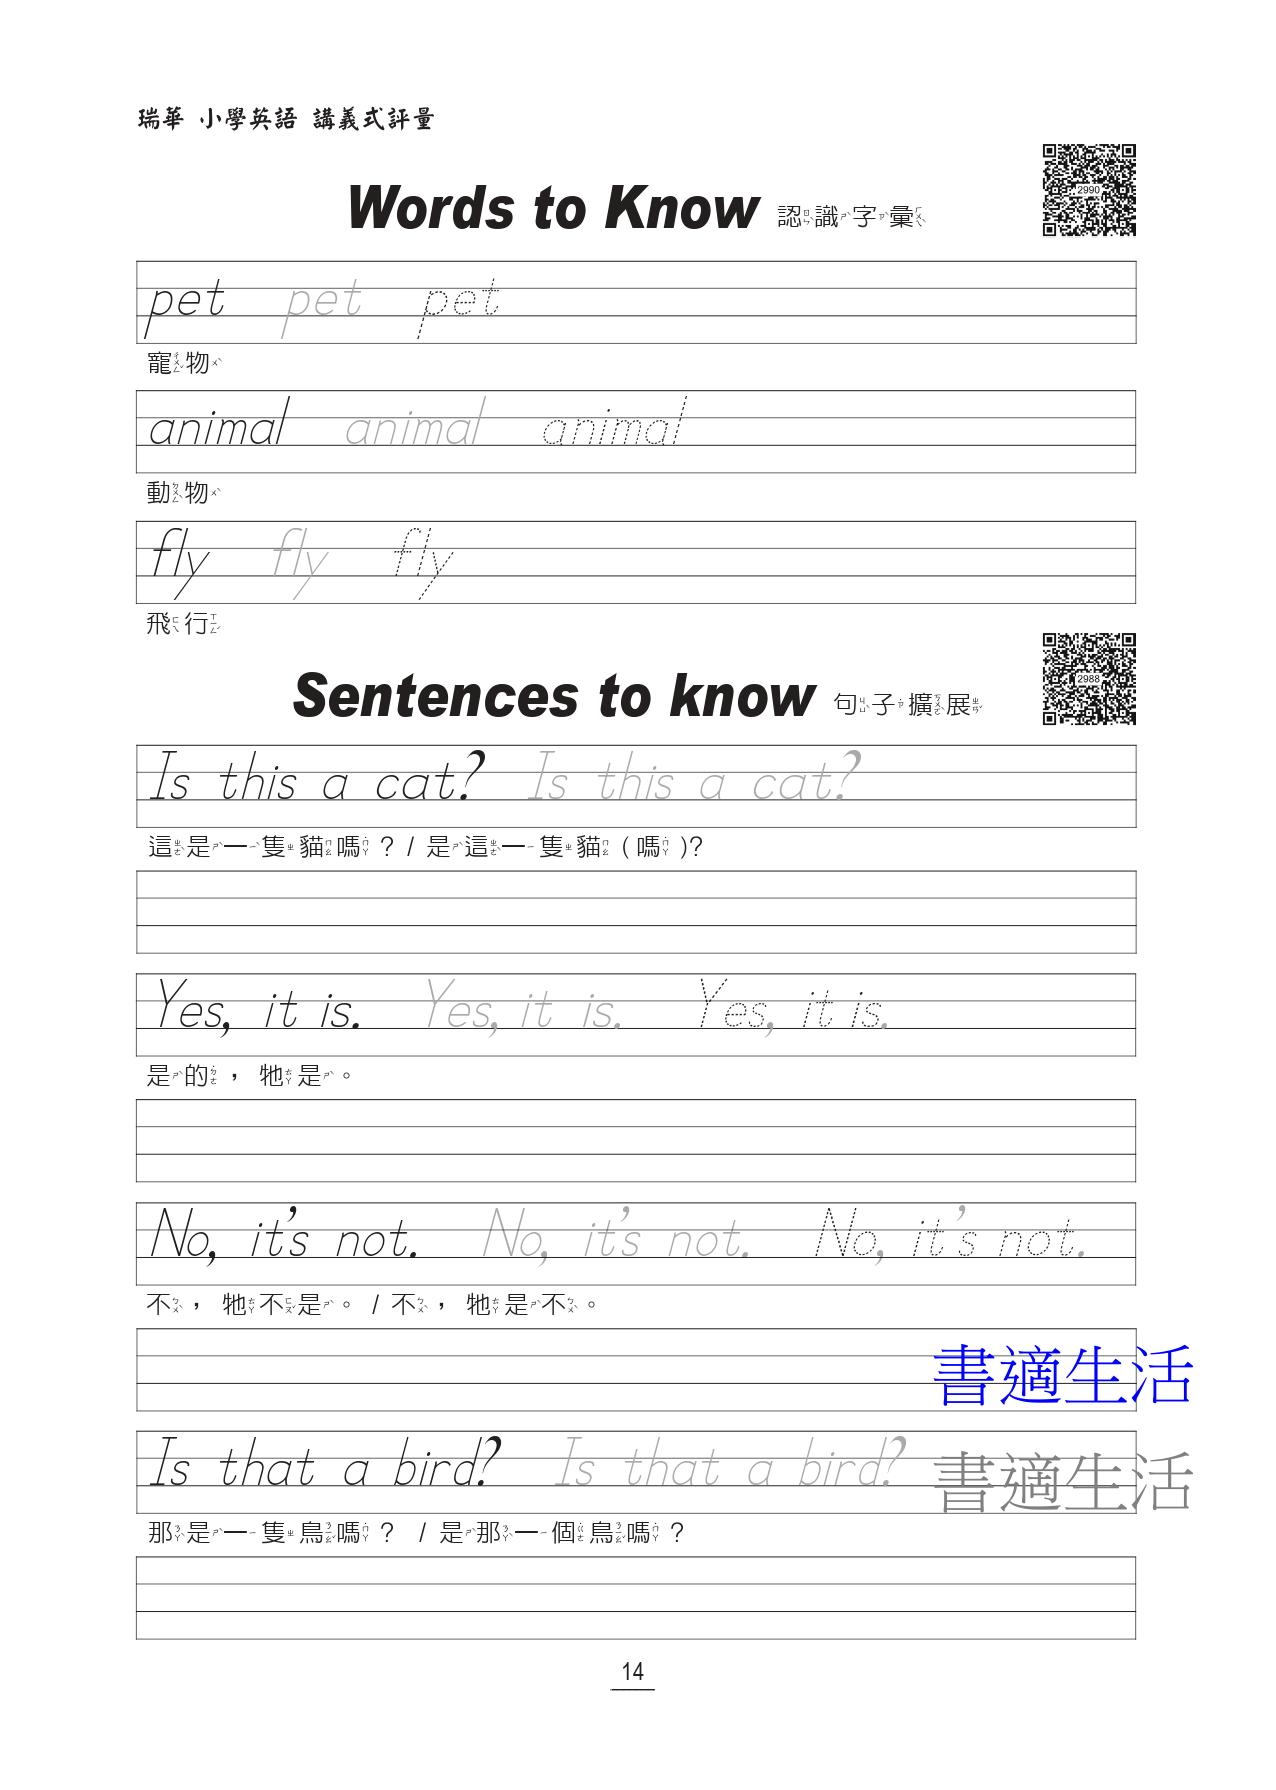 瑞華 小學英語 講義式評量
2990
Words to Know 認識字彙
pet pet pet
寵物
animal animal animal
動物
fly fly fly
飛行
2988
Sentences to know 句子擴展
Is this a cat? Is this a cat?
這是一隻貓嗎？/ 是這一隻貓 ( 嗎 )?
Yes, it is. Yes, it is. Yes, it is.
是的， 牠是。
No, it's not. No, it's not. No, it's not.
不， 牠不是。 / 不， 牠是不。
書適生活
Is that a bird? Is that a bird?
書適生活
那是一隻鳥嗎？ / 是那一個鳥嗎？
14